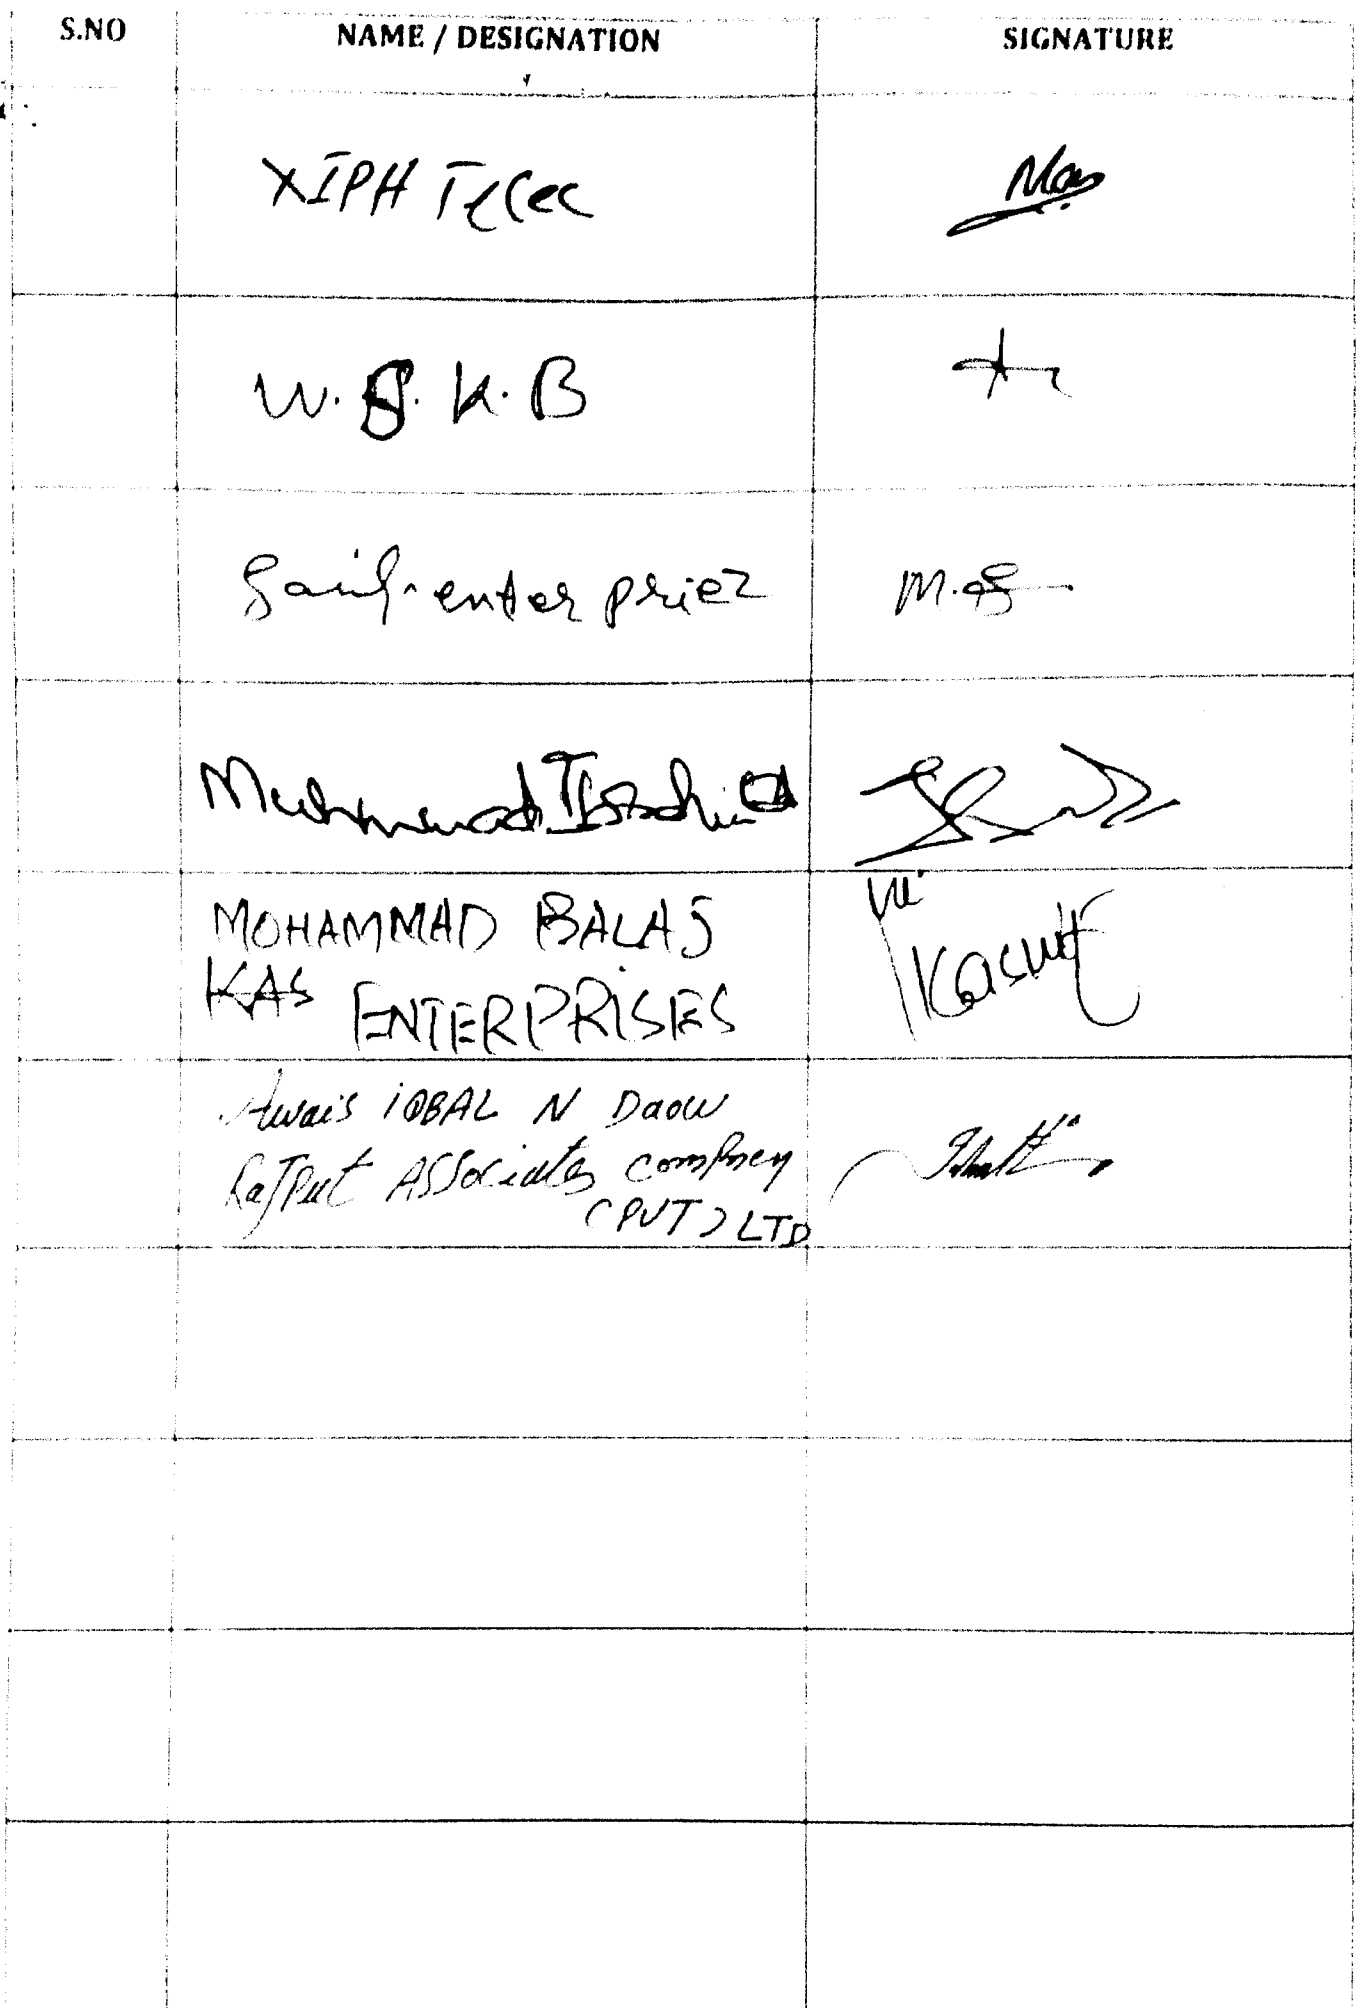 S.NO NAME / DESIGNATION SIGNATURE
XIPH Telec
W.S.K.B
Saif enter priez
Muhammad Ibrahim
MOHAMMAD BALAJ
KAS ENTERPRISES Kashif
Awais iQBAL N Daow
RaJPut ASSociates company
(PVT) LTD